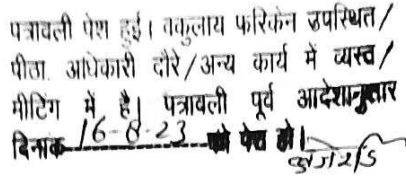 पत्रावली पेश हुई। वकुलाय फरिकेन उपस्थित/
पीठा. अधिकारी दौरे/अन्य कार्य में व्यस्त/
मीटिंग में है। पत्रावली पूर्व आदेशानुसार
दिनांक 16-8-23 को पेश हो।